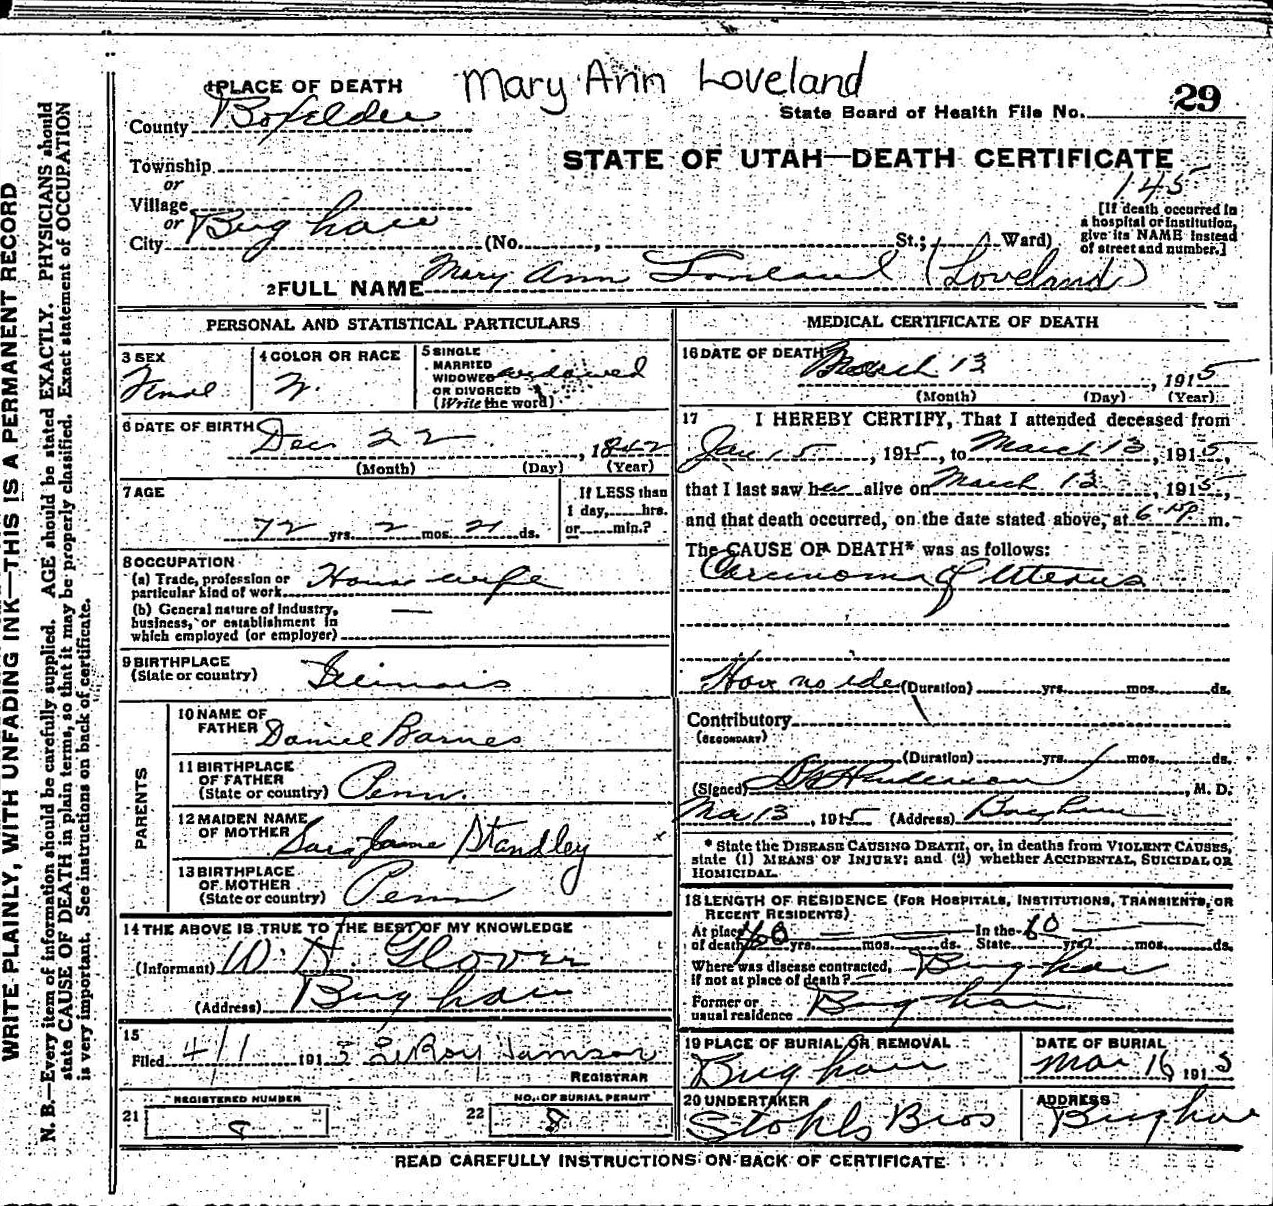 Mary Ann Loveland
1 PLACE OF DEATH
County Boxelder
State Board of Health File No. 29
Township
or
Village
or
City Brigham
STATE OF UTAH—DEATH CERTIFICATE
145
[If death occurred in
a hospital or institution,
give its NAME instead
of street and number.]
(No. , St.; Ward)
2 FULL NAME Mary Ann Loveland (Loveland)
PERSONAL AND STATISTICAL PARTICULARS
3 SEX
4 COLOR OR RACE
W.
5 SINGLE
MARRIED
WIDOWED widowed
OR DIVORCED
(Write the word)
6 DATE OF BIRTH Dec 22, 1842
(Month) (Day) (Year)
7 AGE
72 yrs. 2 mos. 21 ds.
If LESS than
1 day, hrs.
or min.?
8 OCCUPATION
(a) Trade, profession or
particular kind of work House wife
(b) General nature of industry,
business, or establishment in
which employed (or employer) —
9 BIRTHPLACE
(State or country) Illinois
PARENTS
10 NAME OF
FATHER Daniel Barnes
11 BIRTHPLACE
OF FATHER
(State or country) Penn.
12 MAIDEN NAME
OF MOTHER Jane Standley x
13 BIRTHPLACE
OF MOTHER
(State or country) Penn
14 THE ABOVE IS TRUE TO THE BEST OF MY KNOWLEDGE
(Informant) W. H. Glover
(Address) Brigham
15
Filed 4/1 1915 LeRoy
REGISTRAR
21 REGISTERED NUMBER
22 NO. OF BURIAL PERMIT
8
MEDICAL CERTIFICATE OF DEATH
16 DATE OF DEATH March 13, 1915
(Month) (Day) (Year)
17 I HEREBY CERTIFY, That I attended deceased from
Jan 5, 1915, to March 13, 1915,
that I last saw her alive on March 12, 1915,
and that death occurred, on the date stated above, at 6 m.
The CAUSE OF DEATH* was as follows:
Carcinoma of Uterus
Have no idea (Duration) yrs. mos. ds.
Contributory
(SECONDARY)
(Duration) yrs. mos. ds.
(Signed) , M. D.
Mar 13, 1915 (Address) Brigham
* State the DISEASE CAUSING DEATH, or, in deaths from VIOLENT CAUSES,
state (1) MEANS OF INJURY; and (2) whether ACCIDENTAL, SUICIDAL OR
HOMICIDAL.
18 LENGTH OF RESIDENCE (FOR HOSPITALS, INSTITUTIONS, TRANSIENTS, OR
RECENT RESIDENTS)
At place
of death 60 yrs. mos. ds. In the State 60 yrs. mos. ds.
Where was disease contracted,
if not at place of death? Brigham
Former or
usual residence Brigham
19 PLACE OF BURIAL OR REMOVAL
Brigham
DATE OF BURIAL
Mar 16 1915
20 UNDERTAKER
Stohls Bros
ADDRESS
Brigham
READ CAREFULLY INSTRUCTIONS ON BACK OF CERTIFICATE
WRITE PLAINLY, WITH UNFADING INK—THIS IS A PERMANENT RECORD
N. B.—Every item of information should be carefully supplied. AGE should be stated EXACTLY. PHYSICIANS should
state CAUSE OF DEATH in plain terms, so that it may be properly classified. Exact statement of OCCUPATION
is very important. See instructions on back of certificate.